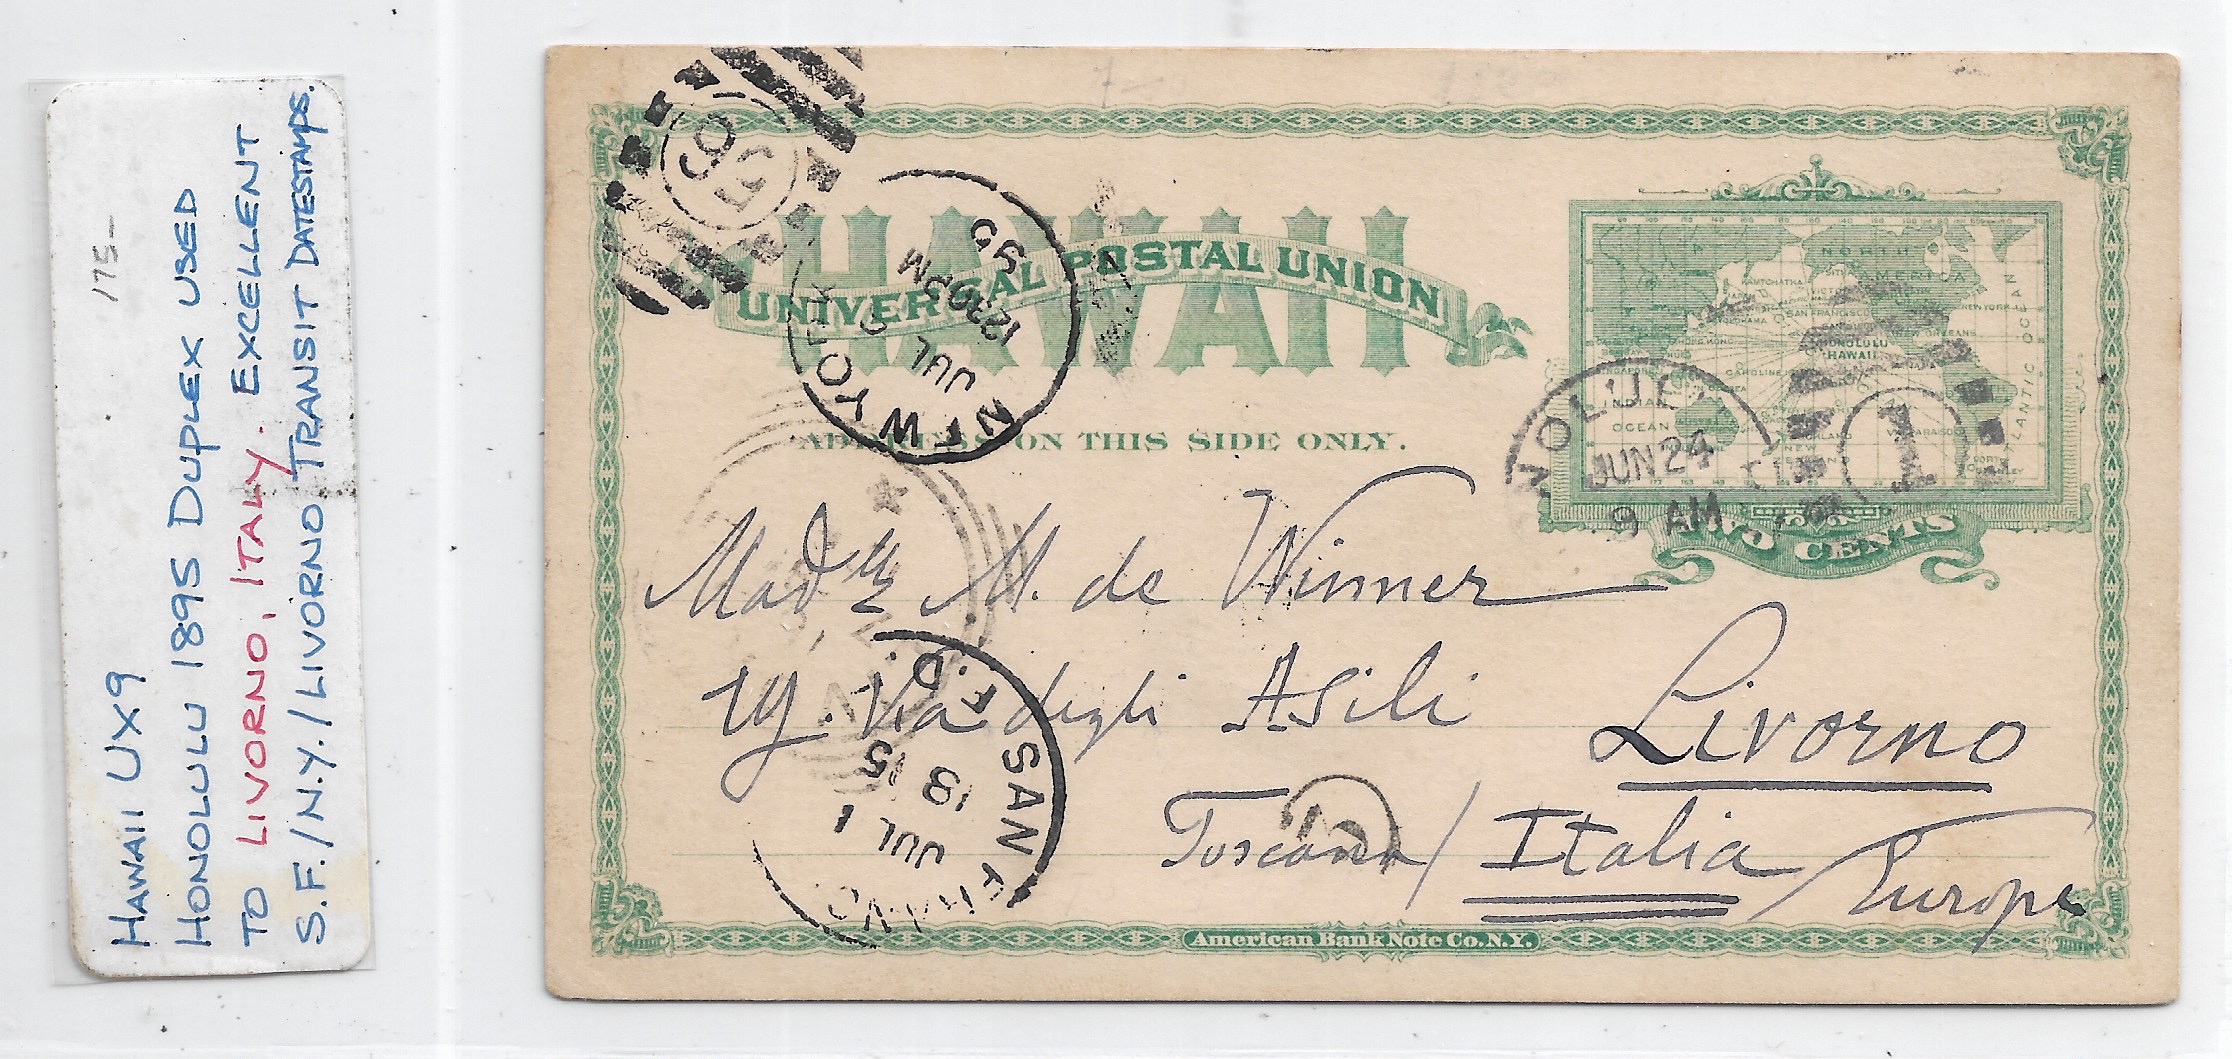 HAWAII UX9
HONOLULU 1895 DUPLEX USED
TO LIVORNO, ITALY. EXCELLENT
S.F./N.Y./LIVORNO TRANSIT DATESTAMPS.
175-
HAWAII
UNIVERSAL POSTAL UNION
ADDRESS ON THIS SIDE ONLY.
NEW YORK
JUL
1230PM
95
NORTH
AMERICA
SAN FRANCISCO
NEW YORK
NEW ORLEANS
HONOLULU
HAWAII
INDIAN
OCEAN
ATLANTIC OCEAN
JUN 24
9 AM
1
TWO CENTS
M. de Wimmer
19. Via degli Asili
Livorno
Toscana / Italia / Europe
SAN FRAN
F.D.
JUL 1
13 15
American Bank Note Co. N.Y.